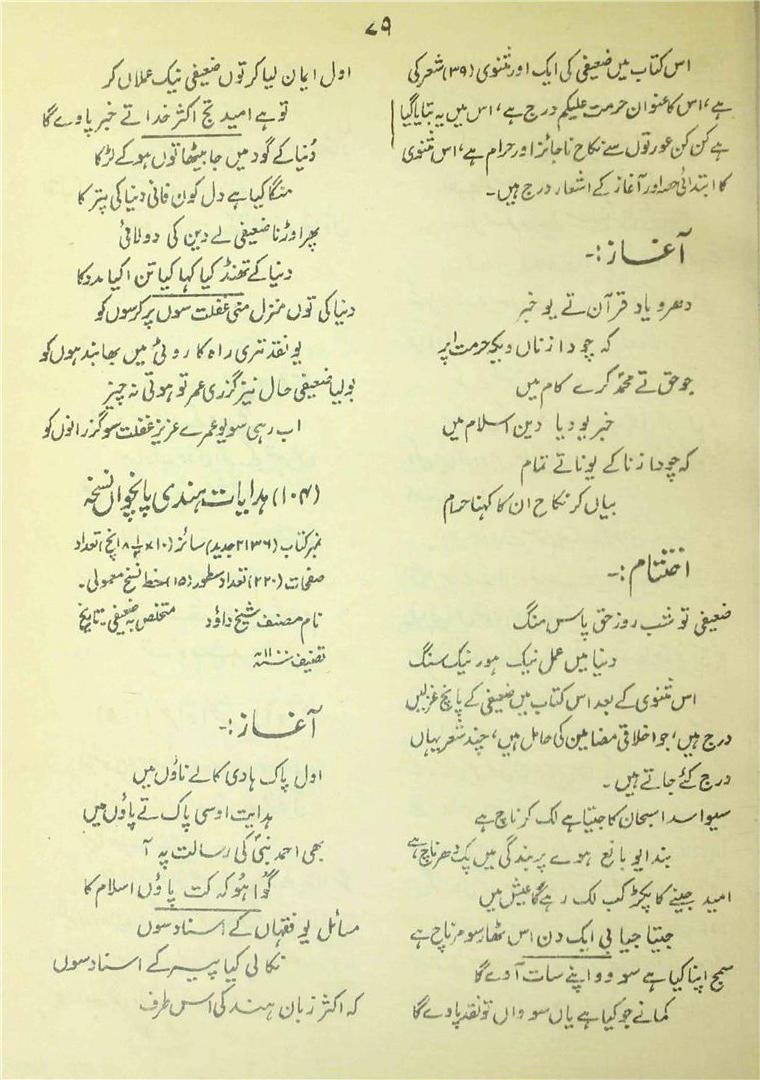 ۷۹
اس کتاب میں ضعیفی کی ایک اور مثنوی (۳۹) شعر کی
ہے، اس کا عنوان حرمت علیکم درج ہے، اس میں یہ بتایا گیا
ہے کن کن عورتوں سے نکاح ناجائز اور حرام ہے، اس مثنوی
کا ابتدائی حصہ اور آغاز کے اشعار درج ہیں۔
آغاز:۔
دھرو یاد قرآن تے یو خبر
کہ چودا زناں دیکہ حرمت اپر
جو حق تے محمدؐ کرے کام میں
خبر یو دیا دین اسلام میں
کہ چودا زنا کے یو ناتے تمام
بیاں کر نکاح ان کا کہنا حرام
اختتام:۔
ضعیفی تو شب روز حق پاس منگ
دنیا میں عمل نیک ہور نیک سنگ
اس مثنوی کے بعد اس کتاب میں ضعیفی کے پانچ غزلیں
درج ہیں، جو اخلاقی مضامین کی حامل ہیں، چند شعر یہاں
درج کئے جاتے ہیں۔
سیوا سدا سبحان کا جیتا ہے لک کرنا چ ہے
بندا یو بانع ہوے پر بندگی میں پک دھرنا چ ہے
امید جینے کا پکڑ کب لک رہے گا عیش میں
جیتا جیا بی ایک دن اس ٹھار سو مرنا چ ہے
سمج اپنا کیا ہے سو وو اپنے سات آوے گا
کمانے جو کیا ہے یاں سو واں تو نقد پاوے گا
اول ایمان لیا کر توں ضعیفی نیک عملاں کر
تو ہے امید تج اکثر خدا تے خبر پاوے گا
دُنیا کے گود میں جا بیٹھا توں ہو کے لڑکا
منگا کیا ہے دل کون فانی دنیا کی پتر کا
پھر اوڑنا ضعیفی لے دین کی دولائی
دنیا کے تھنڈ کیا کہا کیا تن اکیا مدد کا
دنیا کی توں منزل منی غفلت سوں پر کرسوں کو
یو نقد تری راہ کا روٹی میں بھا بند ہوں کو
بولیا ضعیفی حال نیز گزری عمر تو ہوتی نہ چیز
اب رہی سو یو عمرے عزیز غفلت سو گزرانوں کو
(۱۰۴) ہدایات ہندی پانچواں نسخہ
نمبر کتاب (۲۱۳۶ جدید) سائز (۱۰ × ۸½ اپنچ) تعداد
صفحات (۲۲۰) تعداد سطور (۱۵) خط نسخ معمولی۔
نام مصنف شیخ داؤد متخلص بہ ضعیفی۔ تاریخ
تصنیف ۱۱۰۰ھ
آغاز:۔
اول پاک ہادی کا لے ناؤں میں
ہدایت اوسی پاک تے پاؤں میں
بھی احمد نبیؐ کی رسالت پہ آ
گوُا ہو کہ کت پاؤں اسلام کا
مسائل یو فقہاں کے اسناد سوں
نکالی کیا پیر کے اسناد سوں
کہ اکثر زبان ہند کی اس طرف